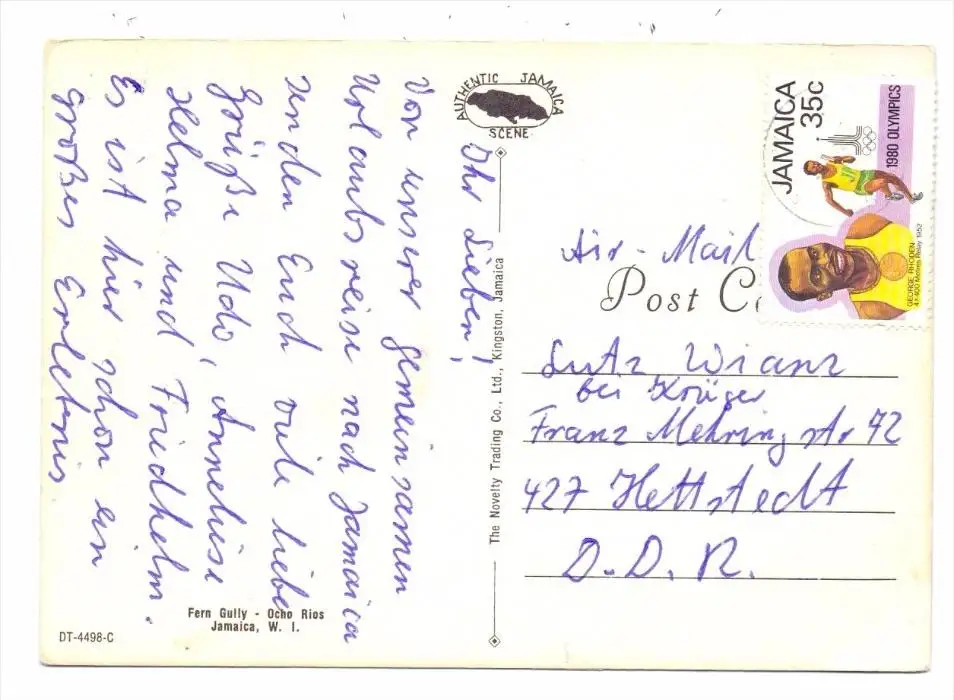 AUTHENTIC JAMAICA
SCENE
Ihr Lieben!
Von unserer gemeinsamen
Urlaubsreise nach Jamaica
senden Euch viele liebe
Grüße Udo, Anneliese
Helma und Friedhelm.
Es ist hier schon ein
großes Erlebnis
Fern Gully - Ocho Rios
Jamaica, W. I.
DT-4498-C
The Novelty Trading Co., Ltd., Kingston, Jamaica
JAMAICA
35c
1980 OLYMPICS
GEORGE RHODEN
4×400 Metres Relay 1952
Air-Mail
Post C
Lutz Wianz
bei Krüger
Franz Mehring str 72
427 Hettstedt
D.D.R.